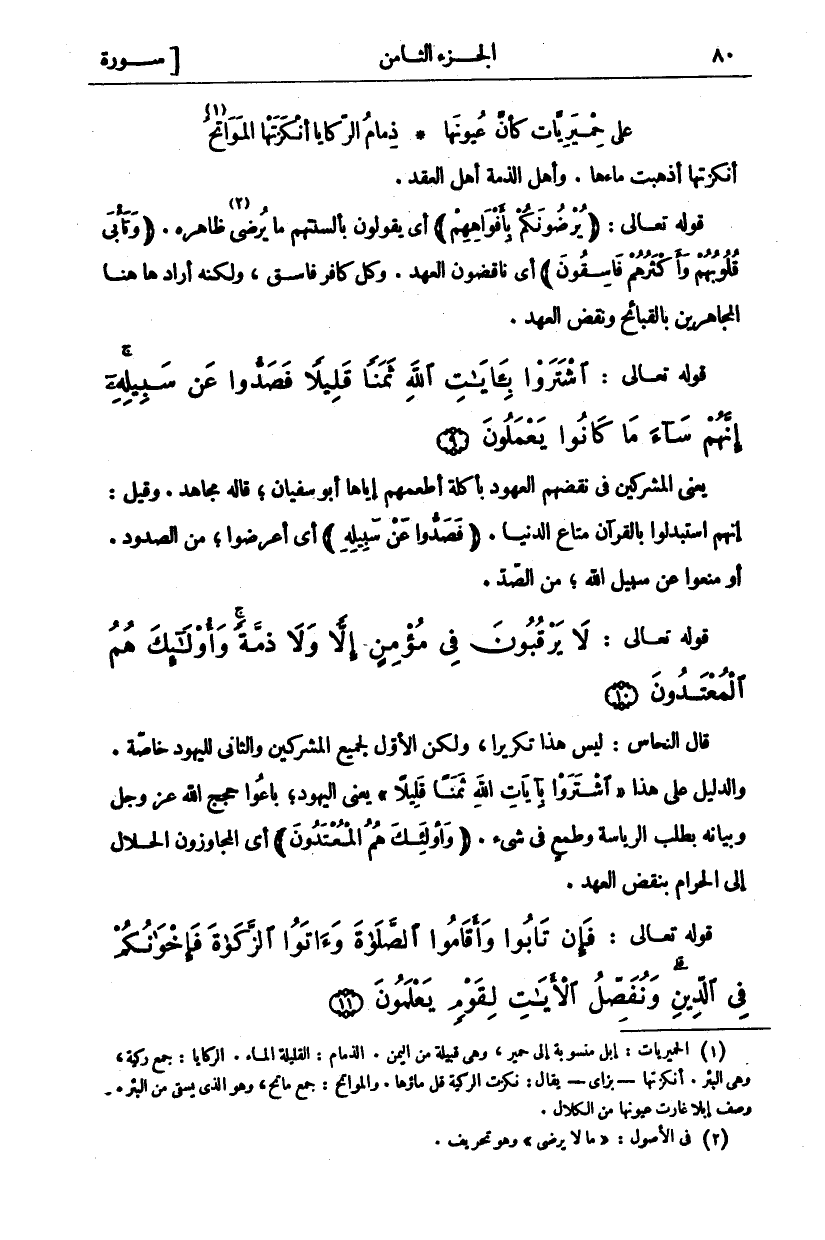 ٨٠ الجـــزء الثـامن [ ســـورة
على حِمْـيَريَّات كأنّ عُيونَها * ذِمامُ الرَّكايا أنْكَزَتْها المَوَاتِحُ (١)
أنكزتها أذهبت ماءها . وأهل الذمة أهل العقد .
قوله تعـالى : ﴿ يُرْضُونَكُمْ بِأَفْوَاهِهِمْ ﴾ أى يقولون بألسنتهم ما يُرضى (٢) ظاهره . ﴿ وَتَأْبَى
قُلُوبُهُمْ وَأَكْثَرُهُمْ فَاسِـقُونَ ﴾ أى ناقضون العهد . وكل كافر فاسـق ، ولكنه أراد ها هنـا
المجاهرين بالقبائح ونقض العهد .
قوله تعـالى : ٱشْتَرَوْا بِـَٔايَـٰتِ ٱللَّهِ ثَمَنًا قَلِيلًا فَصَدُّوا عَن سَبِيلِهِۦٓ ۚ
إِنَّهُمْ سَآءَ مَا كَانُوا يَعْمَلُونَ ۝٩
يعنى المشركين فى نقضهم العهود بأكلة أطعمهم إياها أبو سفيان ؛ قاله مجاهد . وقيل :
إنهم استبدلوا بالقرآن متاع الدنيـا . ﴿ فَصَدُّوا عَنْ سَبِيلِهِ ﴾ أى أعرضوا ؛ من الصدود .
أو منعوا عن سبيل الله ؛ من الصّدّ .
قوله تعـالى : لَا يَرْقُبُونَ فِى مُؤْمِنٍ إِلًّا وَلَا ذِمَّةً ۚ وَأُوْلَـٰٓئِكَ هُمُ
ٱلْمُعْتَـدُونَ ۝١٠
قال النحاس : ليس هذا تكريرا ، ولكن الأوّل لجميع المشركين والثانى لليهود خاصّة .
والدليل على هذا « اشْـتَرَوْا بِآيَاتِ اللهِ ثَمَنًـا قَلِيلًا » يعنى اليهود؛ باعُوا حجج الله عز وجل
وبيانه بطلب الرياسة وطمعٍ فى شىء . ﴿ وَأُولَئِـكَ هُمُ الْمُعْتَدُونَ ﴾ أى المجاوزون الحـلال
إلى الحرام بنقض العهد .
قوله تعـالى : فَإِن تَابُوا وَأَقَامُوا ٱلصَّلَوٰةَ وَءَاتَوُا ٱلزَّكَوٰةَ فَإِخْوَٰنُكُمْ
فِى ٱلدِّينِ ۗ وَنُفَصِّلُ ٱلْأَيَـٰتِ لِقَوْمٍ يَعْلَمُونَ ۝١١
(١) الحميريات : إبل منسوبة إلى حمير ، وهى قبيلة من اليمن . الذمام : القليلة المـاء . الركايا : جمع ركية ،
وهى البئر . أنكزتها — بزاى — يقال : نكزت الركية قل ماؤها . والمواتح : جمع ماتح ، وهو الذى يسقى من البئر . ـ
وصف إبلا غارت عيونها من الكلال .
(٢) فى الأصول : « ما لا يرضى » وهو تحريف .